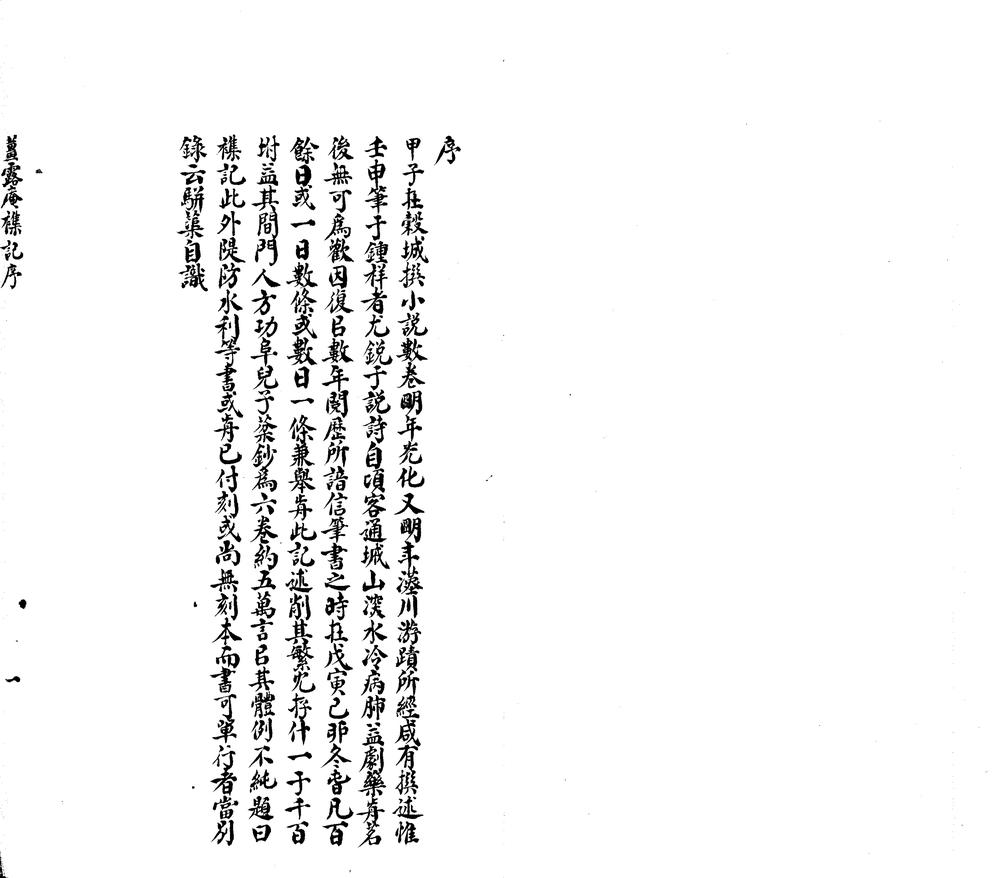 序
甲子在穀城撰小説數卷明年光化又明年濹川游蹟所經咸有撰述惟
壬申筆于鍾祥者尤鋭于説詩自項客通城山深水冷病肺益劇藥歬茗
後無可爲歡因復㠯數年閱歷所諳信筆書之時在戊寅己卯冬春凡百
餘日或一日數條或數日一條兼舉歬此記述削其繁冗存什一于千百
坿益其間門人方功阜兒子蘂鈔爲六卷約五萬言㠯其體例不純題曰
襍記此外隄防水利等書或歬已付刻或尚無刻本而書可單行者當别
錄云駢蕖自識
薑露庵襍記序
一